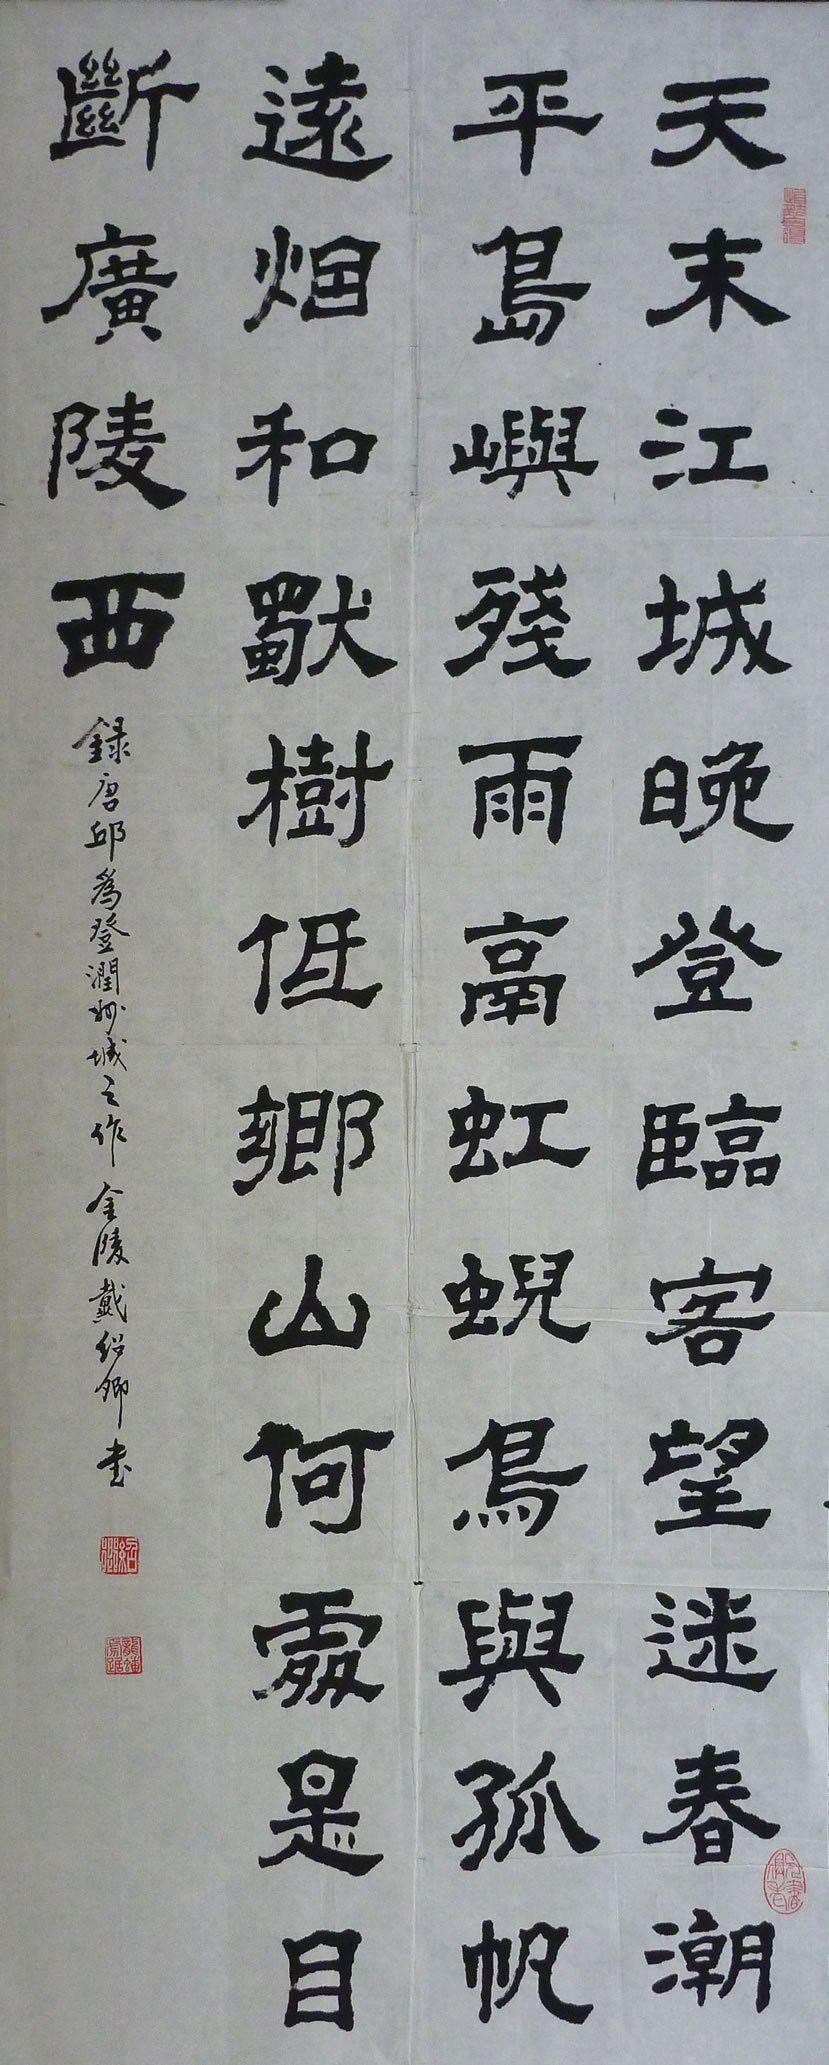 天末江城晚登臨客望迷春潮
平島嶼殘雨鬲虹蜺鳥與孤帆
遠烟和獨樹低鄉山何處是目
斷廣陵西
錄唐邱爲登潤州城之作 金陵戴紹卿書
紹卿
龍蟠虎踞